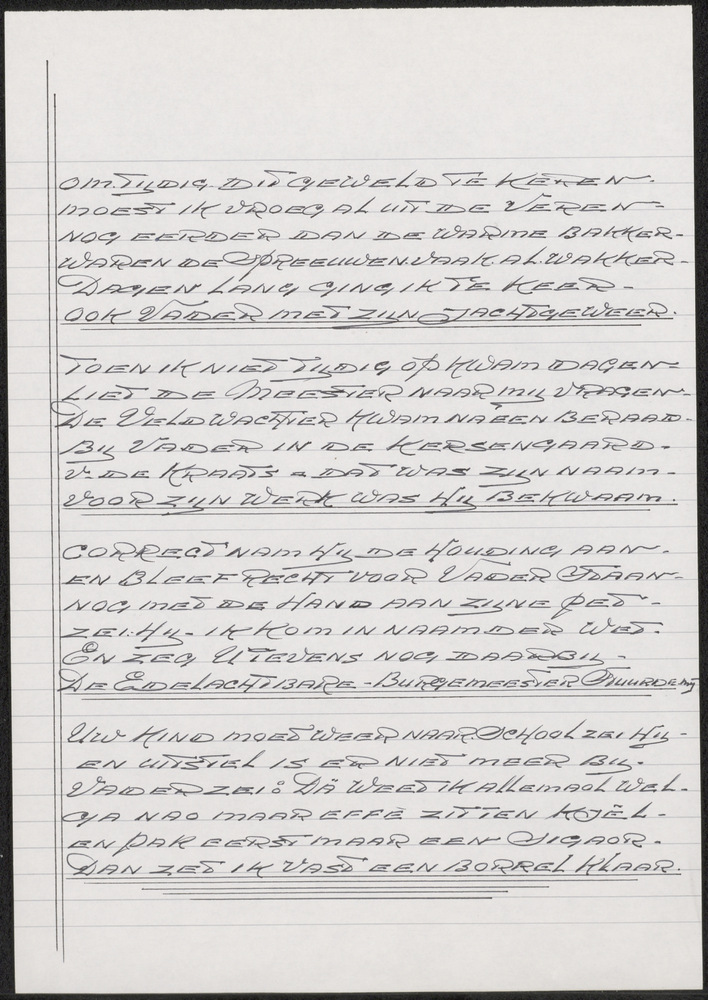 OM TIJDIG DIT GEWELD TE KEREN.
MOEST IK VROEG AL UIT DE VEREN-
NOG EERDER DAN DE WARME BAKKER-
WAREN DE SPREEUWEN VAAK AL WAKKER-
DAGEN LANG GING IK TE KEER-
OOK VADER MET ZIJN JACHTGEWEER.
TOEN IK NIET TIJDIG OP KWAM DAGEN-
LIET DE MEESTER NAAR MIJ VRAGEN-
DE VELDWACHTER KWAM NA EEN BERAAD-
BIJ VADER IN DE KERSENGAARD.
V. DE KRAATS = DAT WAS ZIJN NAAM-
VOOR ZIJN WERK WAS HIJ BEKWAAM.
CORRECT NAM HIJ DE HOUDING AAN.
EN BLEEF RECHT VOOR VADER STAAN-
NOG MET DE HAND AAN ZIJNE PET-
ZEI: HIJ- IK KOM IN NAAM DER WET.
EN ZEG U TEVENS NOG DAARBIJ-
DE EDELACHTBARE-BURGEMEESTER STUURDE MIJ
UW KIND MOET WEER NAAR SCHOOL ZEI HIJ-
EN UITSTEL IS ER NIET MEER BIJ.
VADER ZEI: DÄ WEET IK ALLEMAOL WEL.
GA NAO MAAR EFFE ZITTEN KJËL-
EN PAK EERST MAAR EEN SIGAOR.
DAN ZET IK VAST EEN BORREL KLAAR.